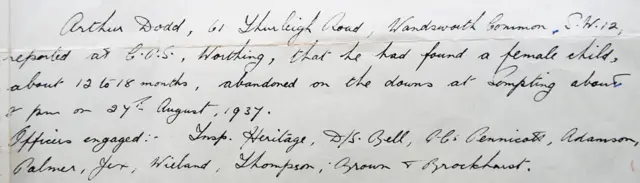 Arthur Dodd, 61 Thurleigh Road, Wandsworth Common, S.W.12,
reported at C.O.S., Worthing, that he had found a female child,
about 12 to 18 months, abandoned on the downs at Sompting about
pm on 27th August, 1937.
Officers engaged:- Insp. Heritage, D/S. Bell, P.C.s Pennicott, Adamson,
Palmer, Jex, Wieland, Thompson, Brown & Brockhurst.